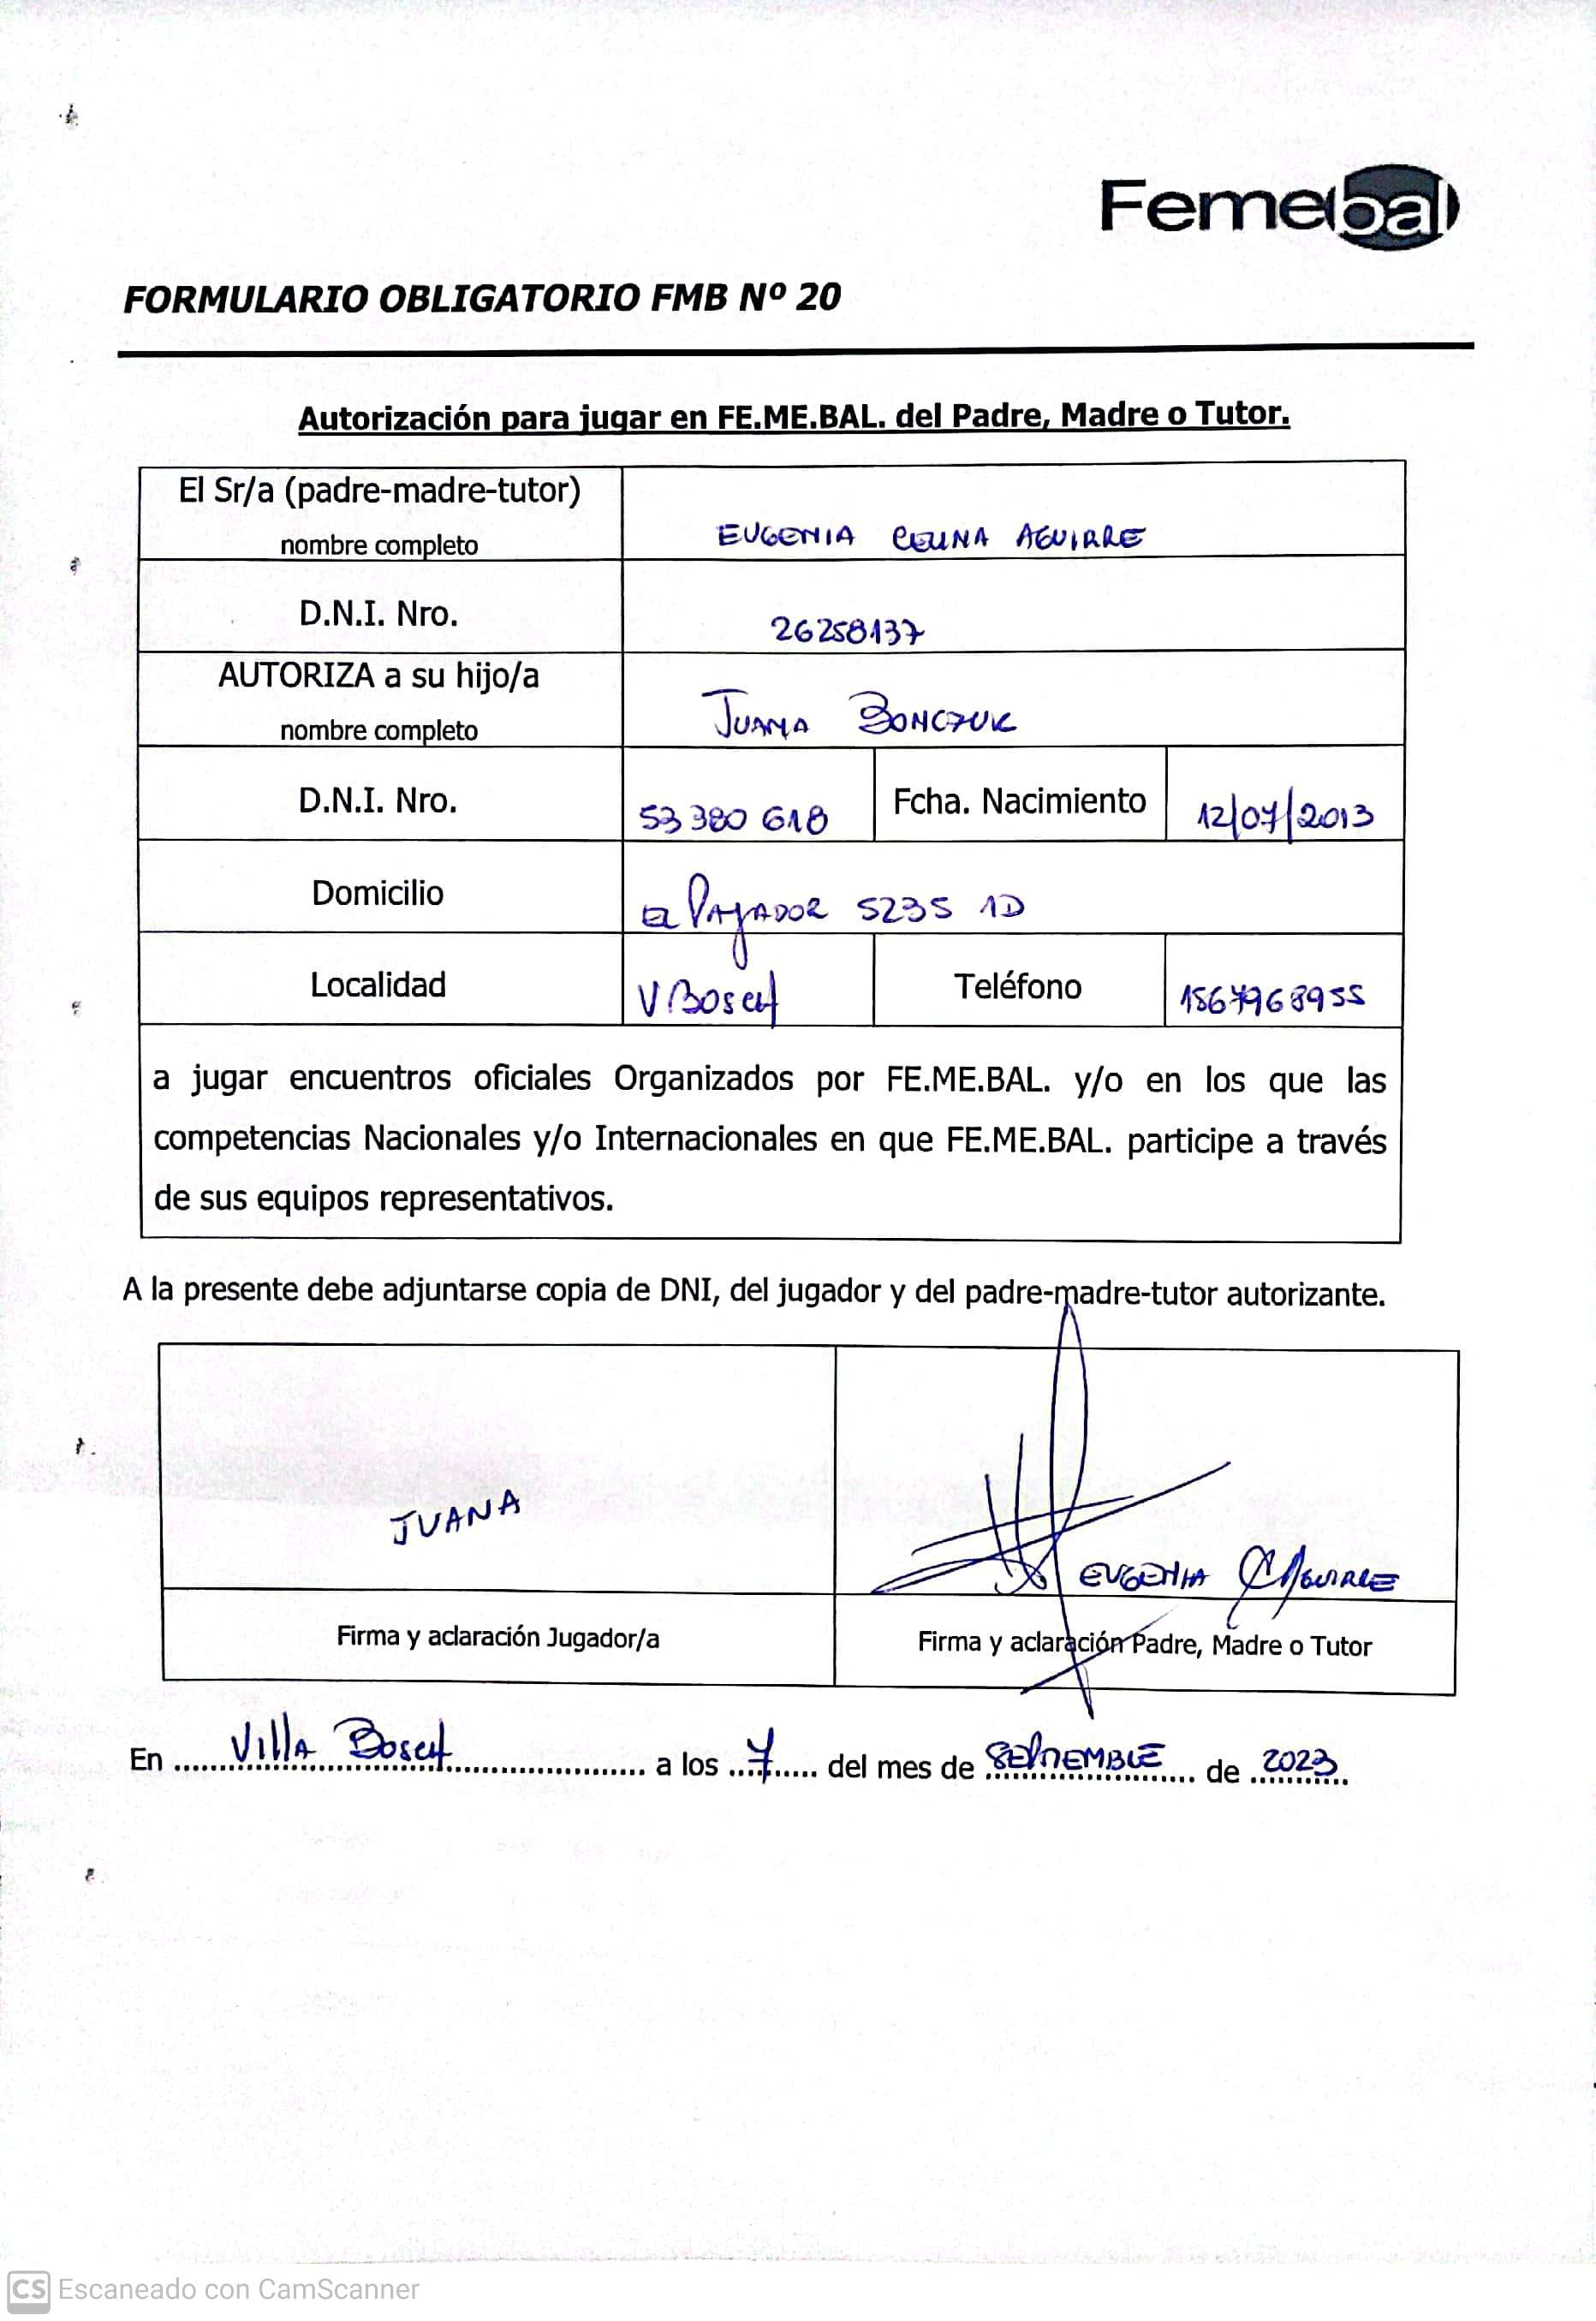 Femebal
FORMULARIO OBLIGATORIO FMB Nº 20
Autorización para jugar en FE.ME.BAL. del Padre, Madre o Tutor.
El Sr/a (padre-madre-tutor)
nombre completo
EUGENIA CELINA AGUIRRE
D.N.I. Nro.
26258137
AUTORIZA a su hijo/a
nombre completo
JUANA BONCZUK
D.N.I. Nro.
53 380 618
Fcha. Nacimiento
12/07/2013
Domicilio
EL PAYADOR 5235 1D
Localidad
V BOSCH
Teléfono
1567968955
a jugar encuentros oficiales Organizados por FE.ME.BAL. y/o en los que las
competencias Nacionales y/o Internacionales en que FE.ME.BAL. participe a través
de sus equipos representativos.
A la presente debe adjuntarse copia de DNI, del jugador y del padre-madre-tutor autorizante.
JUANA
EUGENIA C AGUIRRE
Firma y aclaración Jugador/a
Firma y aclaración Padre, Madre o Tutor
En Villa Bosch a los 7 del mes de SEPTIEMBRE de 2023
CS Escaneado con CamScanner